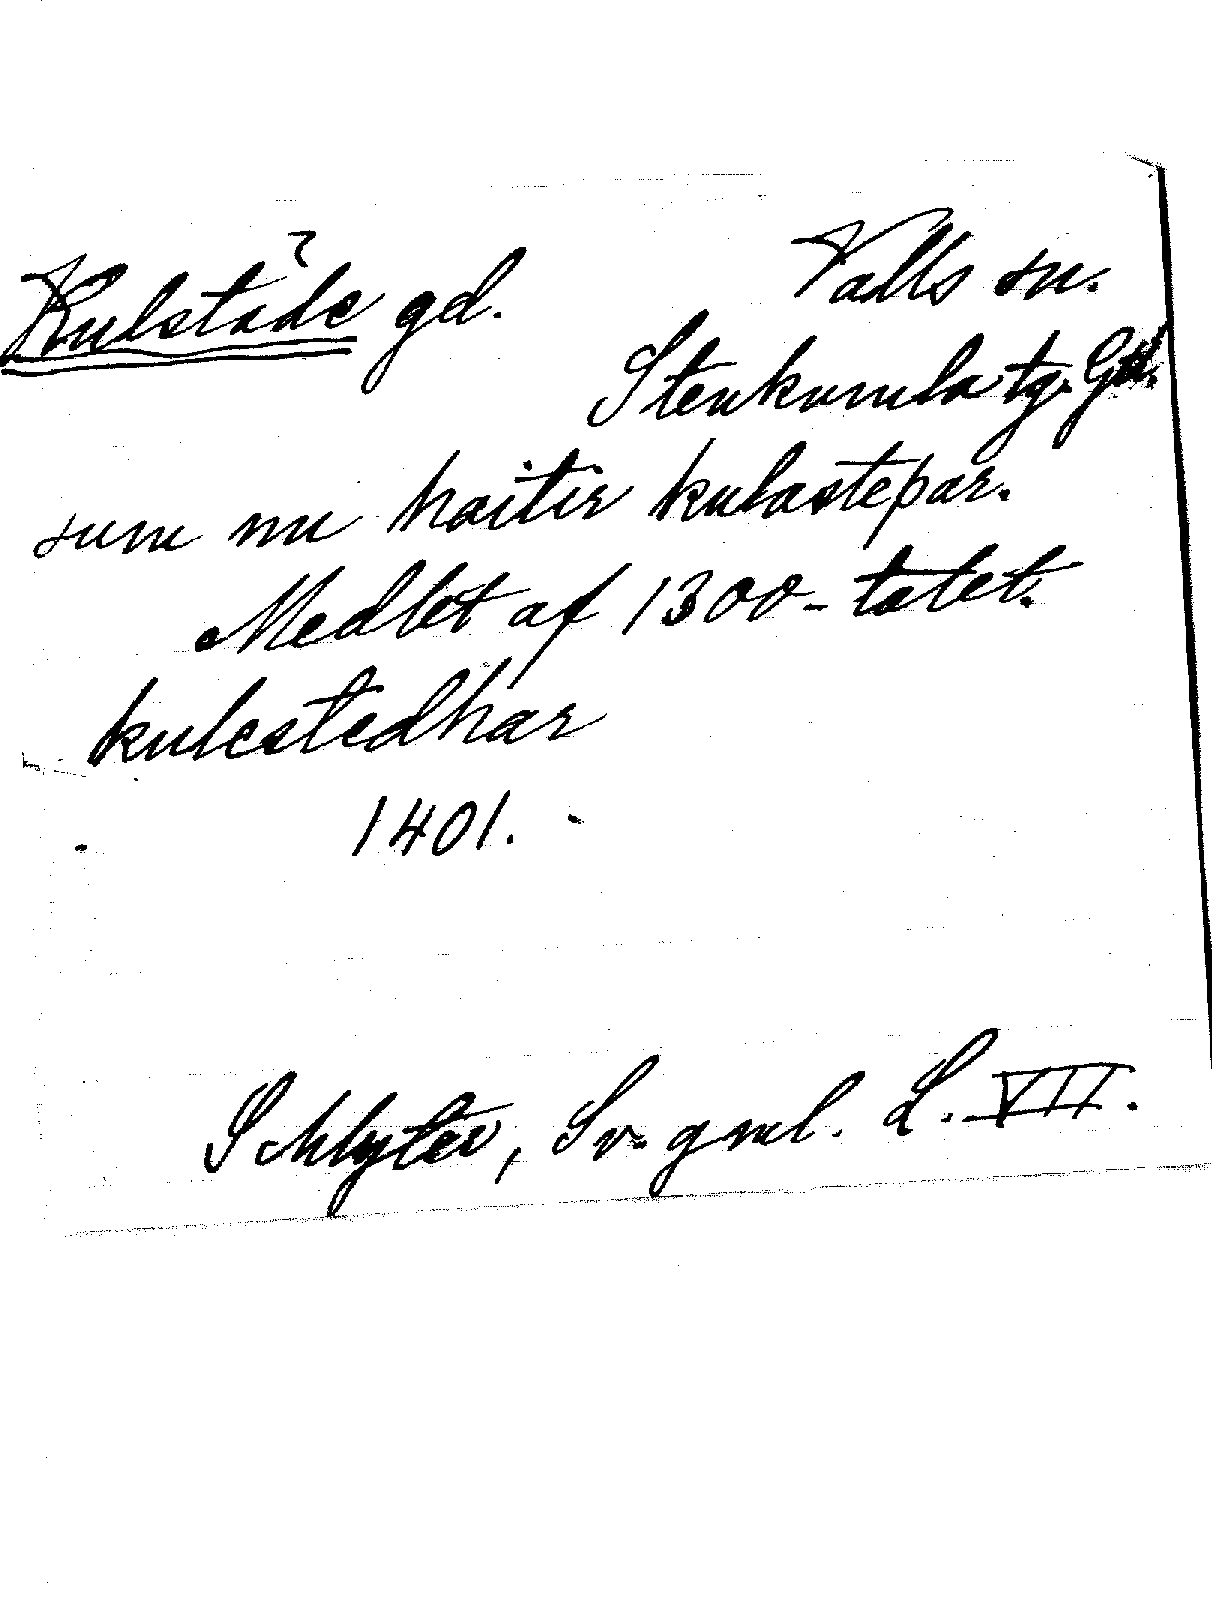 Kulstäde gd. Valls sn.
Stenkumla tg. Gtl.
sum nu haitir kulasteþar.
Medlet af 1300-talet.
kulestedhar
1401.
Schlyter, Sv. gml. L. VII.